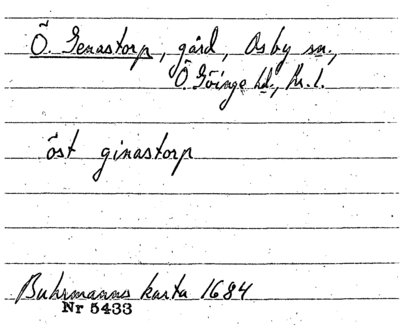 Ö. Genastorp, gård, Osby sn.,
Ö. Göinge hd., Kr. l.
öst ginastorp
Buhrmanns karta 1684
Nr 5433